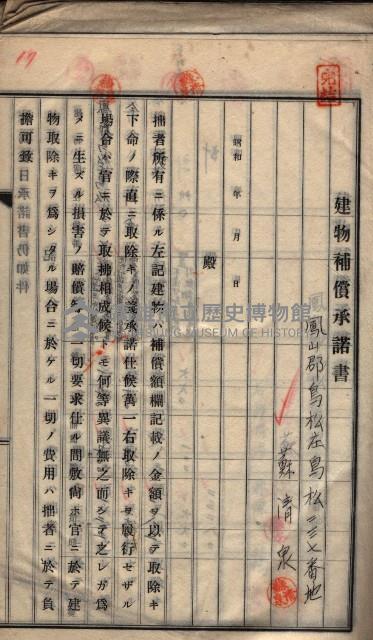 建物補償承諾書
鳳山郡鳥松庄鳥松二三七番地
蘇清泉
昭和 年 月 日
殿
拙者所有ニ係ル左記建物ハ補償額欄記載ノ金額ヲ以テ取除キ
下命ノ際直ニ取除キノ義承諾仕候萬一右取除キヲ履行セザル
場合ハ官ニ於テ取拂相成候トモ何等異議無之而シテ之レガ爲
メニ生ズル損害ノ賠償ハ一切要求仕ル間敷尚ホ官ニ於テ建
物取除キヲ爲シタル場合ニ於ケル一切ノ費用ハ拙者ニ於テ負
擔可致日承諾書仍如件
19
高雄市立歷史博物館
KAOHSIUNG MUSEUM OF HISTORY